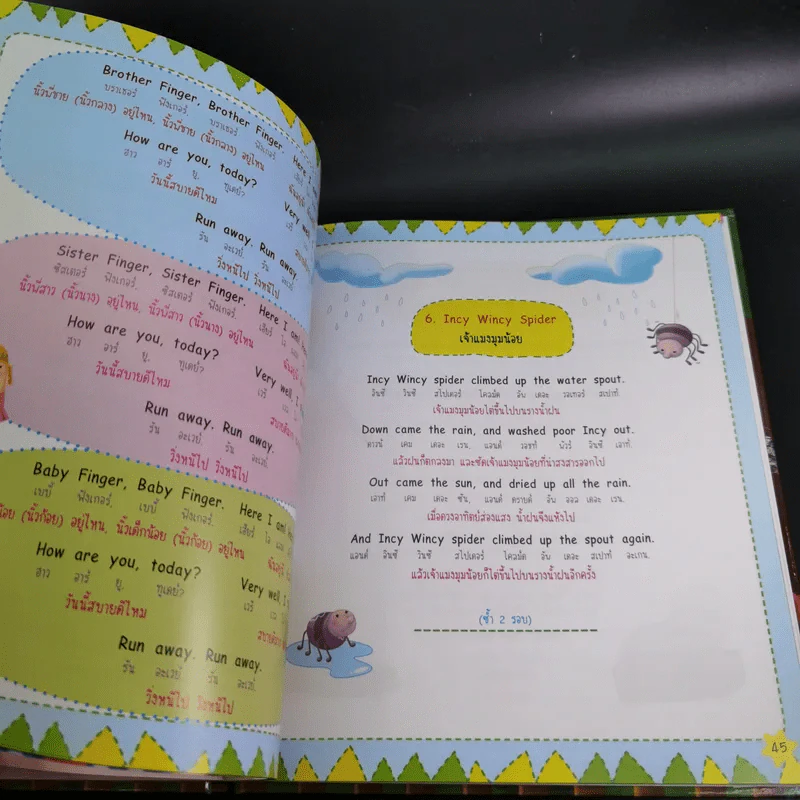 Brother Finger, Brother Finger. Here I
บราเธอร์ ฟิงเกอร์, บราเธอร์ ฟิงเกอร์.
นิ้วพี่ชาย (นิ้วกลาง) อยู่ไหน, นิ้วพี่ชาย (นิ้วกลาง) อยู่ไหน
How are you, today? Very
ฮาว อาร์ ยู, ทูเดย์? เวรี่
วันนี้สบายดีไหม
Run away. Run away.
รัน อะเวย์. รัน อะเวย์.
วิ่งหนีไป วิ่งหนีไป
Sister Finger, Sister Finger. Here I am!
ซิสเตอร์ ฟิงเกอร์, ซิสเตอร์ ฟิงเกอร์. เฮียร์ ไอ
นิ้วพี่สาว (นิ้วนาง) อยู่ไหน, นิ้วพี่สาว (นิ้วนาง) อยู่ไหน
How are you, today? Very well, I
ฮาว อาร์ ยู, ทูเดย์? เวรี่
วันนี้สบายดีไหม
Run away. Run away.
รัน อะเวย์. รัน อะเวย์.
วิ่งหนีไป วิ่งหนีไป
Baby Finger, Baby Finger. Here I am!
เบบี้ ฟิงเกอร์, เบบี้ ฟิงเกอร์. เฮียร์ ไอ แอม
น้อย (นิ้วก้อย) อยู่ไหน, นิ้วเด็กน้อย (นิ้วก้อย) อยู่ไหน
How are you, today? Very well, I
ฮาว อาร์ ยู, ทูเดย์? เวรี่
วันนี้สบายดีไหม
Run away. Run away.
รัน อะเวย์. รัน อะเวย์.
วิ่งหนีไป วิ่งหนีไป
6. Incy Wincy Spider
เจ้าแมงมุมน้อย
Incy Wincy spider climbed up the water spout.
อินซี วินซี สไปเดอร์ ไคลม์ด อัพ เดอะ วอเทอร์ สเปาท์.
เจ้าแมงมุมน้อยไต่ขึ้นไปบนรางน้ำฝน
Down came the rain, and washed poor Incy out.
ดาวน์ เคม เดอะ เรน, แอนด์ วอชท์ พัวร์ อินซี เอาท์.
แล้วฝนก็ตกลงมา และซัดเจ้าแมงมุมน้อยที่น่าสงสารออกไป
Out came the sun, and dried up all the rain.
เอาท์ เคม เดอะ ซัน, แอนด์ ดรายด์ อัพ ออล เดอะ เรน.
เมื่อดวงอาทิตย์ส่องแสง น้ำฝนจึงแห้งไป
And Incy Wincy spider climbed up the spout again.
แอนด์ อินซี วินซี สไปเดอร์ ไคลม์ด อัพ เดอะ สเปาท์ อะเกน.
แล้วเจ้าแมงมุมน้อยก็ไต่ขึ้นไปบนรางน้ำฝนอีกครั้ง
(ซ้ำ 2 รอบ)
45